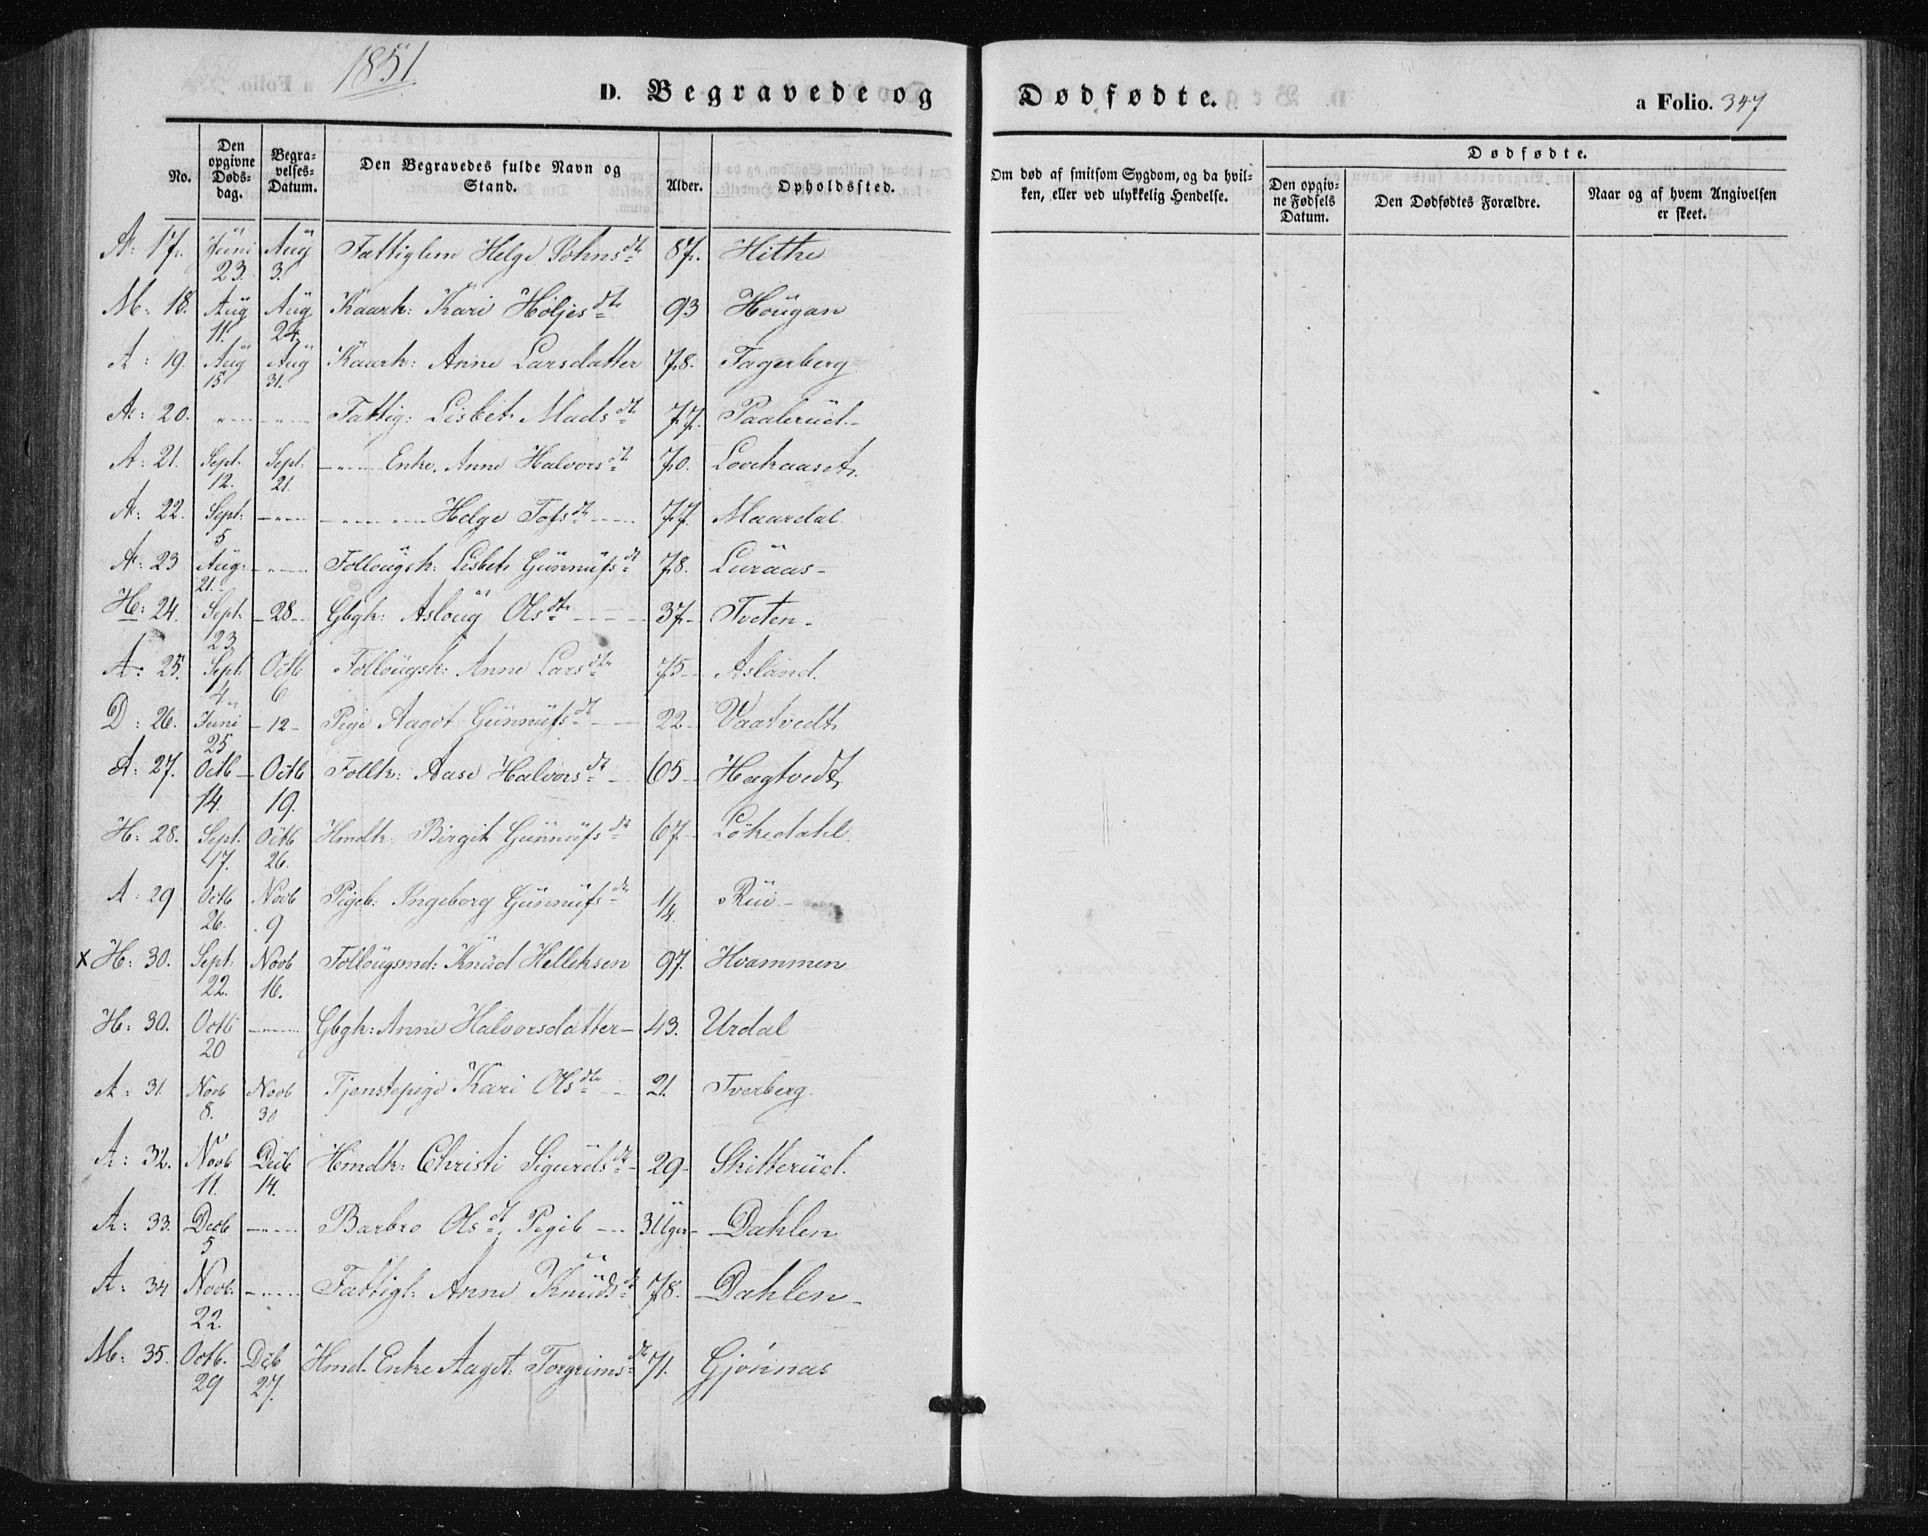 1851
D. Begravede og Dødfødte.
a Folio. 347
No. | Den opgivne Døds-dag. | Begra-velses-Datum. | Den Begravedes fulde Navn og Stand. | Alder. | Opholdssted. | Om død af smitsom Sygdom, og da hvil-ken, eller ved ulykkelig Hendelse. | Dødfødte. | Den opgiv-ne Fødsels Datum. | Den Dødfødtes Forældre. | Naar og af hvem Angivelsen er skeet.
A: 17. Juni 23. Aug 3. Fattiglem Helge Johnsdtr 87. Hithe
M: 18. Aug 11. Aug 24. Kaark: Kari Høljesdtr 93 Hougan
A: 19. Aug 15 Aug 31. Kaark: Anne Larsdatter 78. Fagerberg
A: 20. " " Fattig: Lisbet Madsdt 77. Paalerud
A: 21. Sept. 12. Sept. 21. " Enke, Anne Halvorsdt 70.
A: 22. Sept. 5 " " Helge Tofsdt 77. Maardal
A: 23 Aug: 21. " Follougsk: Lisbet Gunnufsdt 78. Luraas
H: 24. Sept. 23 28 Gbgk: Asloug Olsdtr 37 Tveten
A: 25. Sept 4 Octb 6 Follougsk: Anne Larsdtr 75 Asland.
D: 26. Juni 25 12 Pige Aagot Gunnufsdt 22 Vaatvedt
A: 27. Octb 14. Octb 19. Follk: Aase Halvorsdt 65 Hægtvedt
H: 28. Sept. 17. Octb 26. Hmdk: Birgit Gunnufsdt 67 Løkedahl
A: 29 Octb 26. Novb 9 Pigeb: Ingeborg Gunnufsdtr 1/4. Rui
x H: 30. Sept. 22. Novb 16. Follougsmd: Knud Helleksen 97. Hvammen
H: 30. Octb 20 " Gbgk: Anne Halvorsdatter 43. Urdal
A: 31 Novb 8. Novb 30 Tjenstepige Kari Olsdtr 21. Tverberg
A: 32. Novb 11. Decb 14. Hmdk: Christi Sigurdsdt 29 Skitterud.
A: 33. Decb 5 " Barbro Olsdt, Pigeb 3 Uger Dahlen
A: 34 Novb: 22. " Fattigl: Anne Knudsdt 78. Dahlen
M: 35. Octb. 29 Decb 27. Hmd. Enke Aaget Torgrimsdt 71. Gjønnas